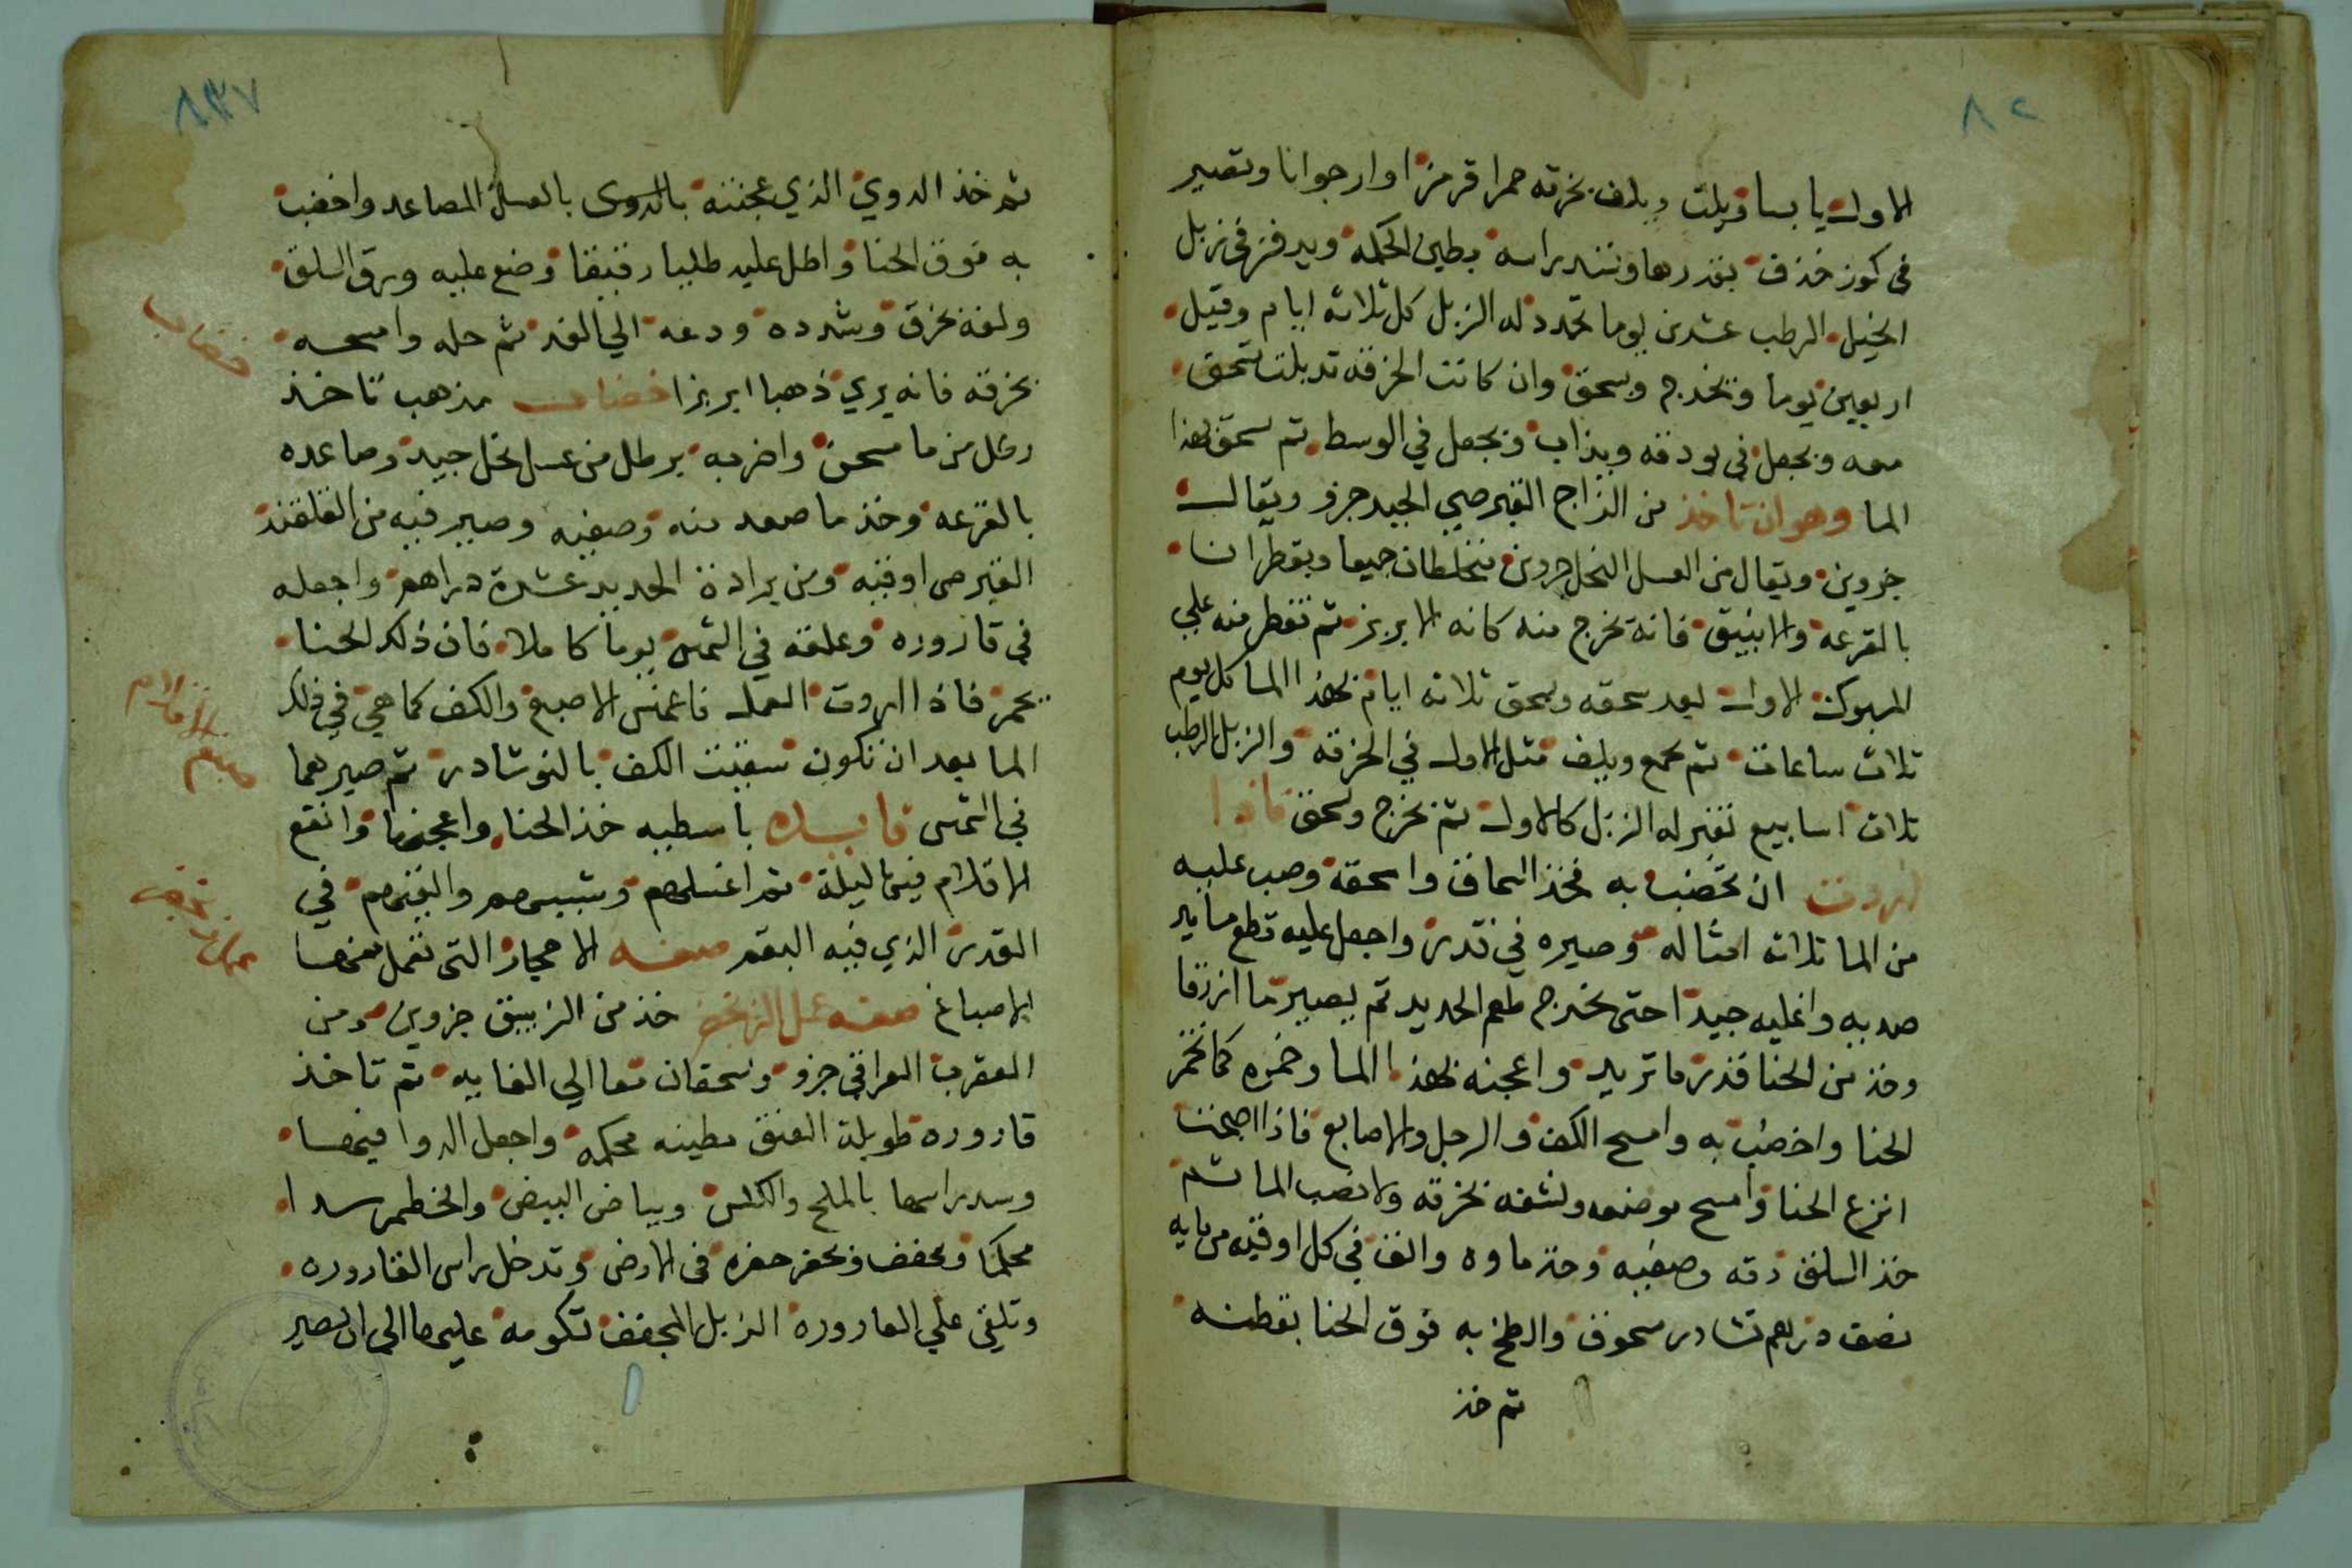 ٨٢
الاول يابسا ويلت ويلف بخرقه حمرا قرمزا او ارجوانا وتصير
فى كوز خذف بقدرها وتشد راسه بطين الحكمه ويدفن فى زبل
الخيل الرطب عشرين يوما تجدد له الزبل كل ثلاثه ايام وقيل
اربعين يوما وتخرج وسحق وان كانت الخرقه قد بليت تسحق
معه ويجعل فى بودقه ويذاب ويجعل في الوسط ثم يسحق بهذا
الما وهو ان تاخذ من الزاج القبرصي الجيد جزو ويقال
جزوين ويقال من العسل النحل جزوين فيخلطان جميعا ويقطران
بالقرعه والانبيق فانه يخرج منه كانه الابريز ثم تقطر منه علي
المهبوك الاول بعد سحقه ويسحق ثلاثه ايام بهذا الما كل يوم
ثلاث ساعات ثم يجمع ويلف مثل الاول في الخرقه والزبل الرطب
ثلاث اسابيع تغير له الزبل كالاول ثم يخرج وتسحق فاذا
اردت ان تخضب به فخذ السماق واسحقه وصب عليه
من الما ثلاثة امثاله وصيره في قدر واجعل عليه قطع
صديه واغليه جيدا حتى يخرج طعم الحديد ثم يصير ما ازرقا
وخذ من الحنا قدر ما تريد واعجنه بهذا الما وخمره كما تخمر
الحنا واخضب به وامسح الكف والرجل والاصابع فاذا اصبحت
انزع الحنا وامسح موضعه ونشفه بخرقه ولا تصب الما ثم
خذ السلق دقه وصفيه وخذ ماوه والق فى كل اوقيه من مايه
نصف درهم نشادر مسحوق والطخ به فوق الحنا بقطنه
ثم خذ
٨٣٧
ثم خذ الدوي الذي عجنته بالدوى بالعسل المصاعد واخضب
به فوق الحنا واطل عليه طليا رقيقا وضع عليه ورق السلق
ولفه بخرق وشده ودعه الي الغد ثم حله وامسحه
بخرقه فانه يري ذهبا ابريزا خضاب مذهب تاخذ
رطل من ما سحق واضربه برطل من عسل نحل جيد وصاعده
بالقرعه وخذ ما صعد منه وصفيه وصير فيه من القلقند
القبرصى اوقيه ومن برادة الحديد عشرة دراهم واجعله
في قاروره وعلقه في الشمس يوما كاملا فان ذلك الحنا
يحمر فاذا اردت العمل فاغمس الاصبع والكف كما هي في ذلك
الما بعد ان تكون سقيت الكف بالنوشادر ثم صيرهما
في الشمس فايده باسطيه خذ الحنا واعجنها وانقع
الاقلام فيها ليلة ثم اغسلهم ويبسهم والقيهم في
القدر الذي فيه البقم صفه الاحجار التى تعمل منها
الاصباغ صفه عمل الزنجفر خذ من الزيبق جزوين ومن
العقرب العراقى جزو ويسحقان معا الي الغايه ثم تاخذ
قاروره طويلة العنق مطينه محكمه واجعل الدوا فيها
وسد راسها بالملح والكلس وبياض البيض والخطمر سدا
محكما ويجفف ويحفر حفره فى الارض وتدخل راس القاروره
وتلقي علي القاروره الزبل المجفف تكومه عليها الى ان يصير
خضاب
صبغ الاقلام
عمل زنجفر